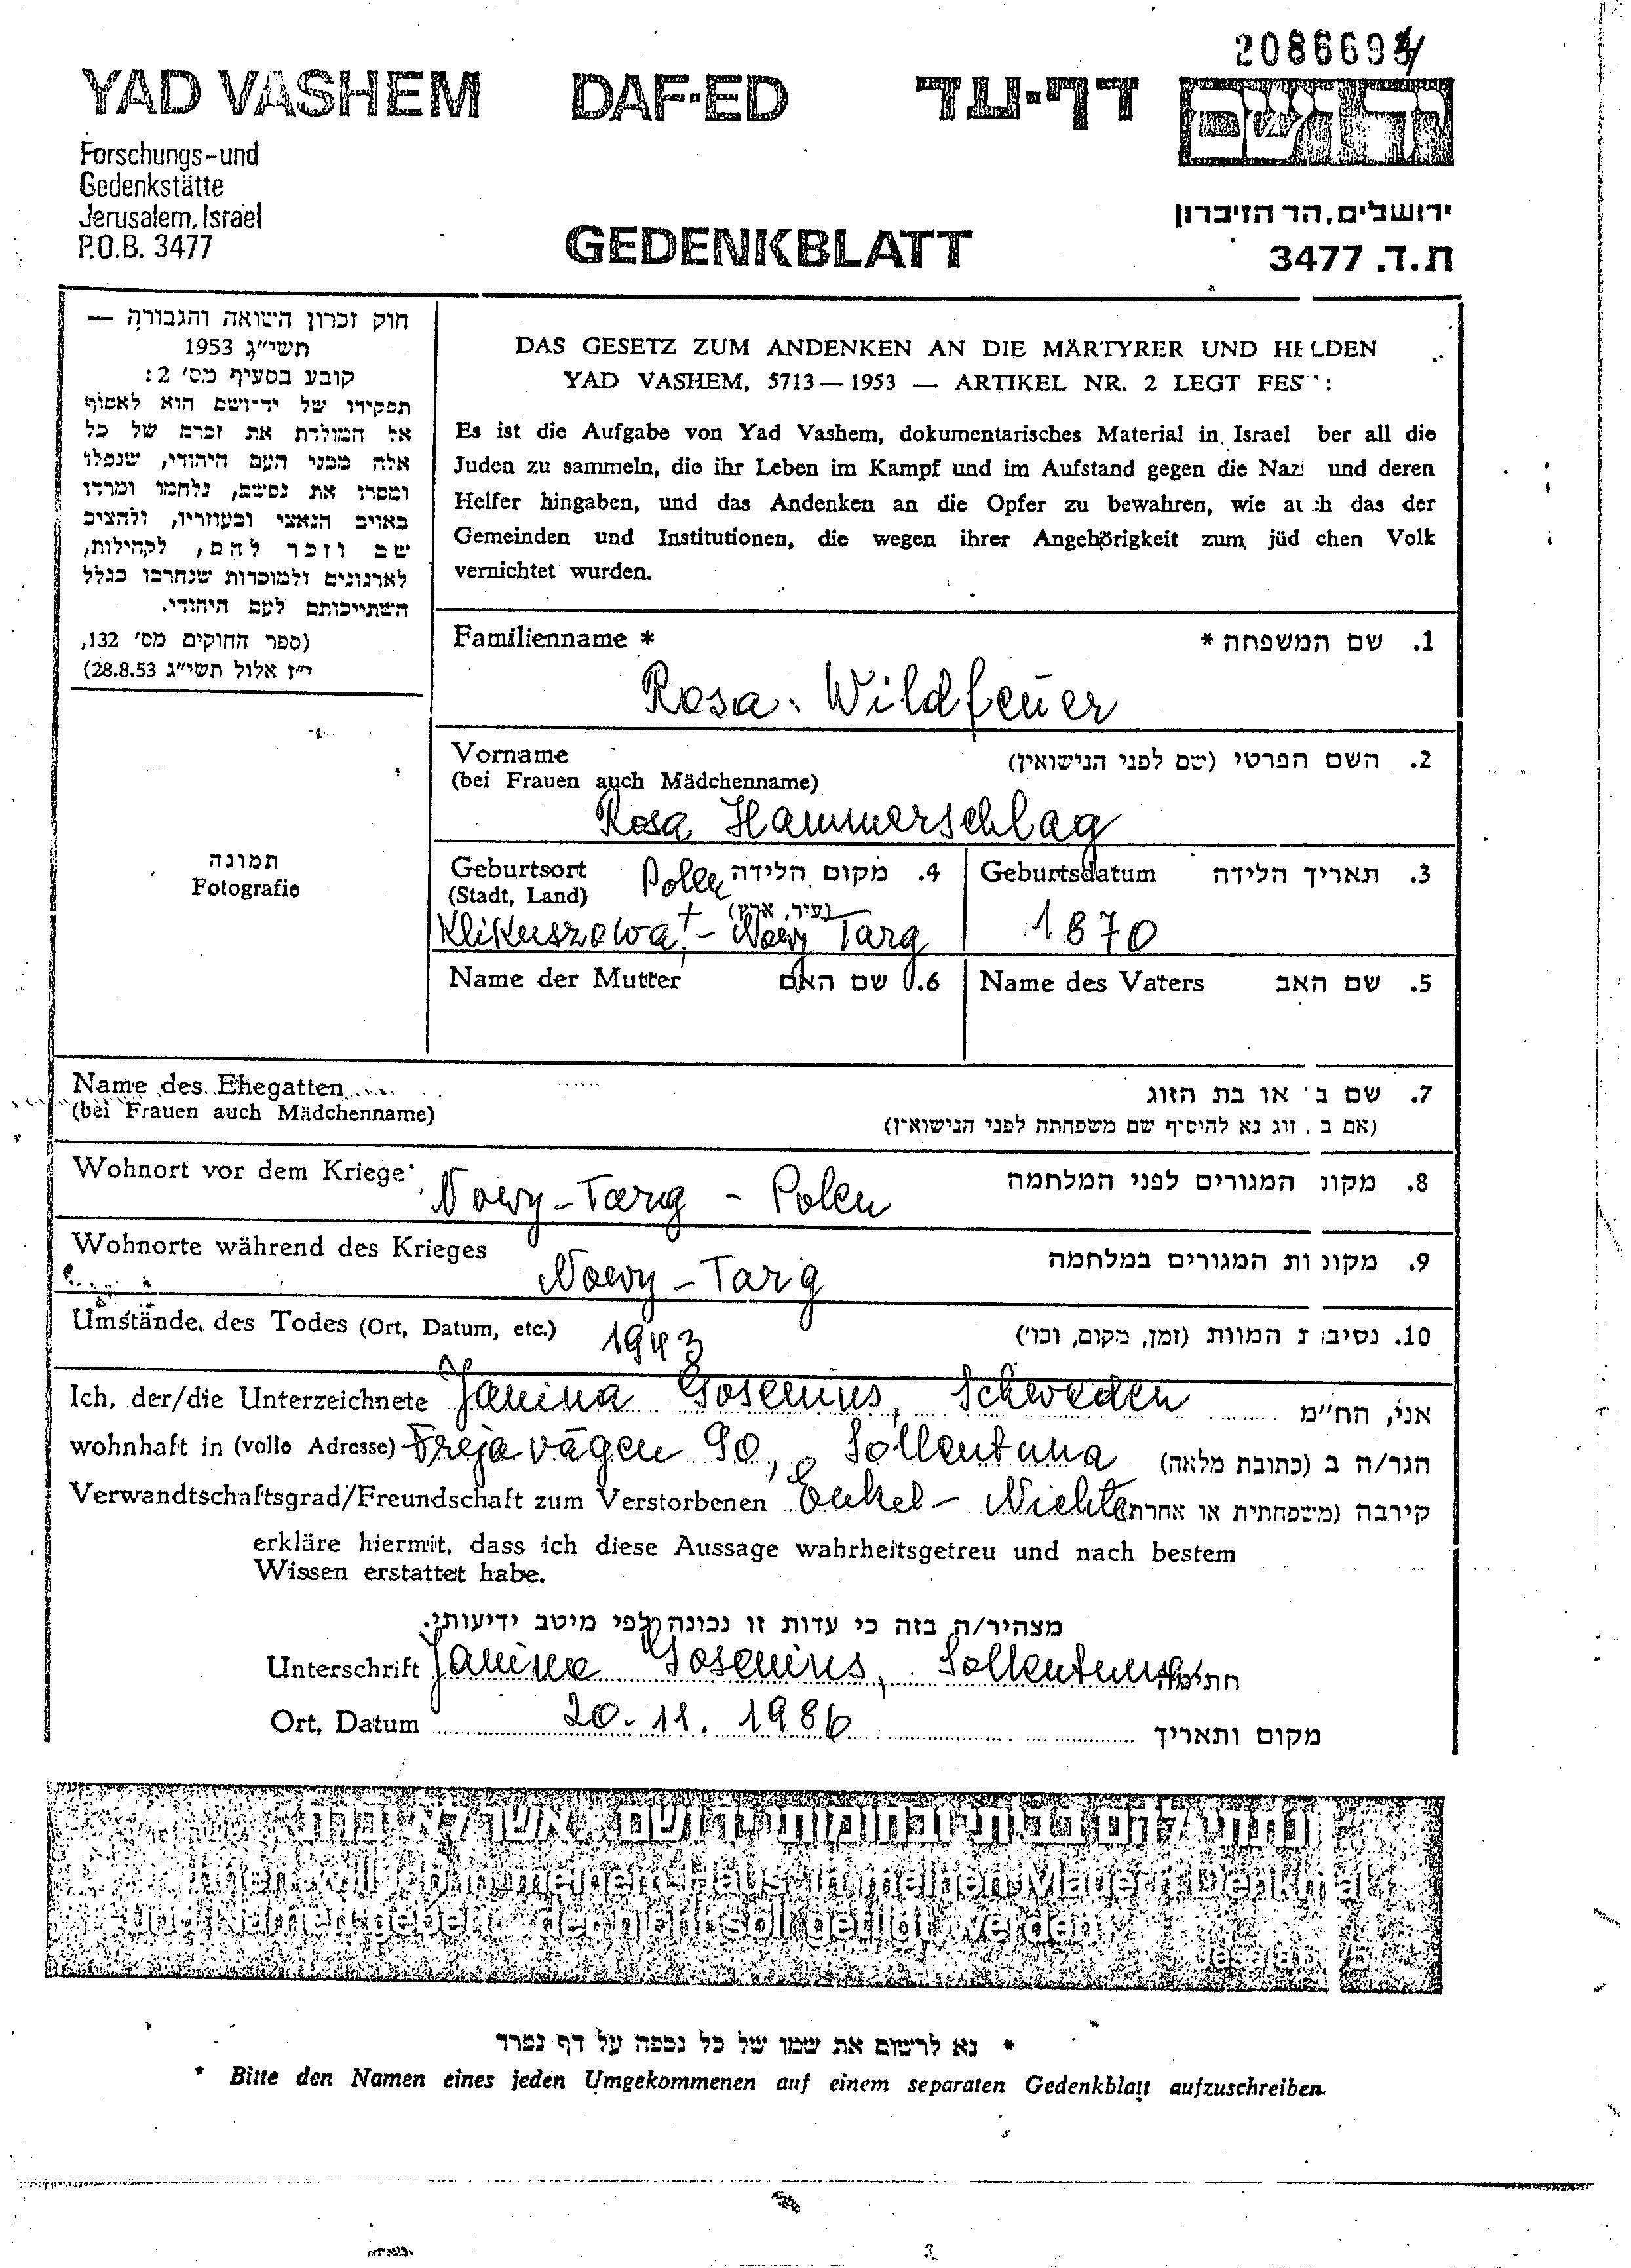 YAD VASHEM DAF-ED דף-עד
יד ושם
Forschungs-und
Gedenkstätte
Jerusalem, Israel
P.O.B. 3477
GEDENKBLATT
ירושלים, הר הזיכרון
ת.ד. 3477
חוק זכרון השואה והגבורה —
תשי"ג 1953
קובע בסעיף מס' 2:
תפקידו של יד-ושם הוא לאסוף
אל המולדת את זכרם של כל
אלה מבני העם היהודי, שנפלו
ומסרו את נפשם, נלחמו ומרדו
באויב הנאצי ובעוזריו, ולהציב
שם וזכר להם, לקהילות,
לארגונים ולמוסדות שנחרבו בגלל
השתייכותם לעם היהודי.
(ספר החוקים מס' 132,
י"ז אלול תשי"ג 28.8.53)
DAS GESETZ ZUM ANDENKEN AN DIE MÄRTYRER UND HELDEN
YAD VASHEM, 5713—1953 — ARTIKEL NR. 2 LEGT FEST:
Es ist die Aufgabe von Yad Vashem, dokumentarisches Material in Israel ber all die
Juden zu sammeln, die ihr Leben im Kampf und im Aufstand gegen die Nazi und deren
Helfer hingaben, und das Andenken an die Opfer zu bewahren, wie auch das der
Gemeinden und Institutionen, die wegen ihrer Angehörigkeit zum jüd chen Volk
vernichtet wurden.
Familienname * 1. שם המשפחה *
Rosa. Wildfeuer
Vorname 2. השם הפרטי (שם לפני הנישואין)
(bei Frauen auch Mädchenname)
Rosa Hammerschlag
תמונה
Fotografie
Geburtsort Polen 4. מקום הלידה
(Stadt, Land) (עיר, ארץ)
Klikuszowa - Nowy Targ
Geburtsdatum 3. תאריך הלידה
1870
Name der Mutter 6. שם האם
Name des Vaters 5. שם האב
Name des Ehegatten 7. שם ב או בת הזוג
(bei Frauen auch Mädchenname) (אם ב. זוג נא להוסיף שם משפחתה לפני הנישואין)
Wohnort vor dem Kriege Nowy-Targ - Polen 8. מקונ המגורים לפני המלחמה
Wohnorte während des Krieges Nowy-Targ 9. מקונ ות המגורים במלחמה
Umstände des Todes (Ort, Datum, etc.) 1943 10. נסיבו ת המוות (זמן, מקום, וכו')
Ich, der/die Unterzeichnete Janina Gosenius, Schweden אני, הח"מ
wohnhaft in (volle Adresse) Frejavägen 90, Sollentuna הגר/ה ב (כתובת מלאה)
Verwandtschaftsgrad/Freundschaft zum Verstorbenen Enkel- Nichte קירבה (משפחתית או אחרת)
erkläre hiermit, dass ich diese Aussage wahrheitsgetreu und nach bestem
Wissen erstattet habe.
מצהיר/ה בזה כי עדות זו נכונה לפי מיטב ידיעותי.
Unterschrift Janina Gosenius, Sollentuna חתימה
Ort, Datum 20.11.1986 מקום ותאריך
ונתתי להם בביתי ובחומותי יד ושם... אשר לא יכרת
Ihnen will ich in meinem Haus in meinen Mauern Denkmal
und Namen geben... der nicht soll getilgt werden
* נא לרשום את שמו של כל נספה על דף נפרד
* Bitte den Namen eines jeden Umgekommenen auf einem separaten Gedenkblatt aufzuschreiben.